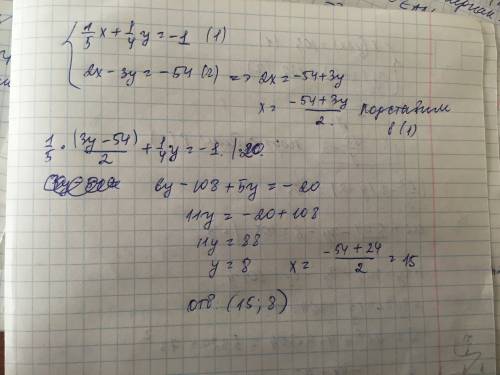 1/5 x + 1/4 y = -1 (1)
2x - 3y = -54 (2) => 2x = -54+3y
x = (-54+3y)/2 подставим в (1)
1/5 · (3y-54)/2 + 1/4 y = -1. |·20.
6y - 108 + 5y = -20
11y = -20+108
11y = 88
y = 8 x = (-54+24)/2 = 15
отв (15; 8)